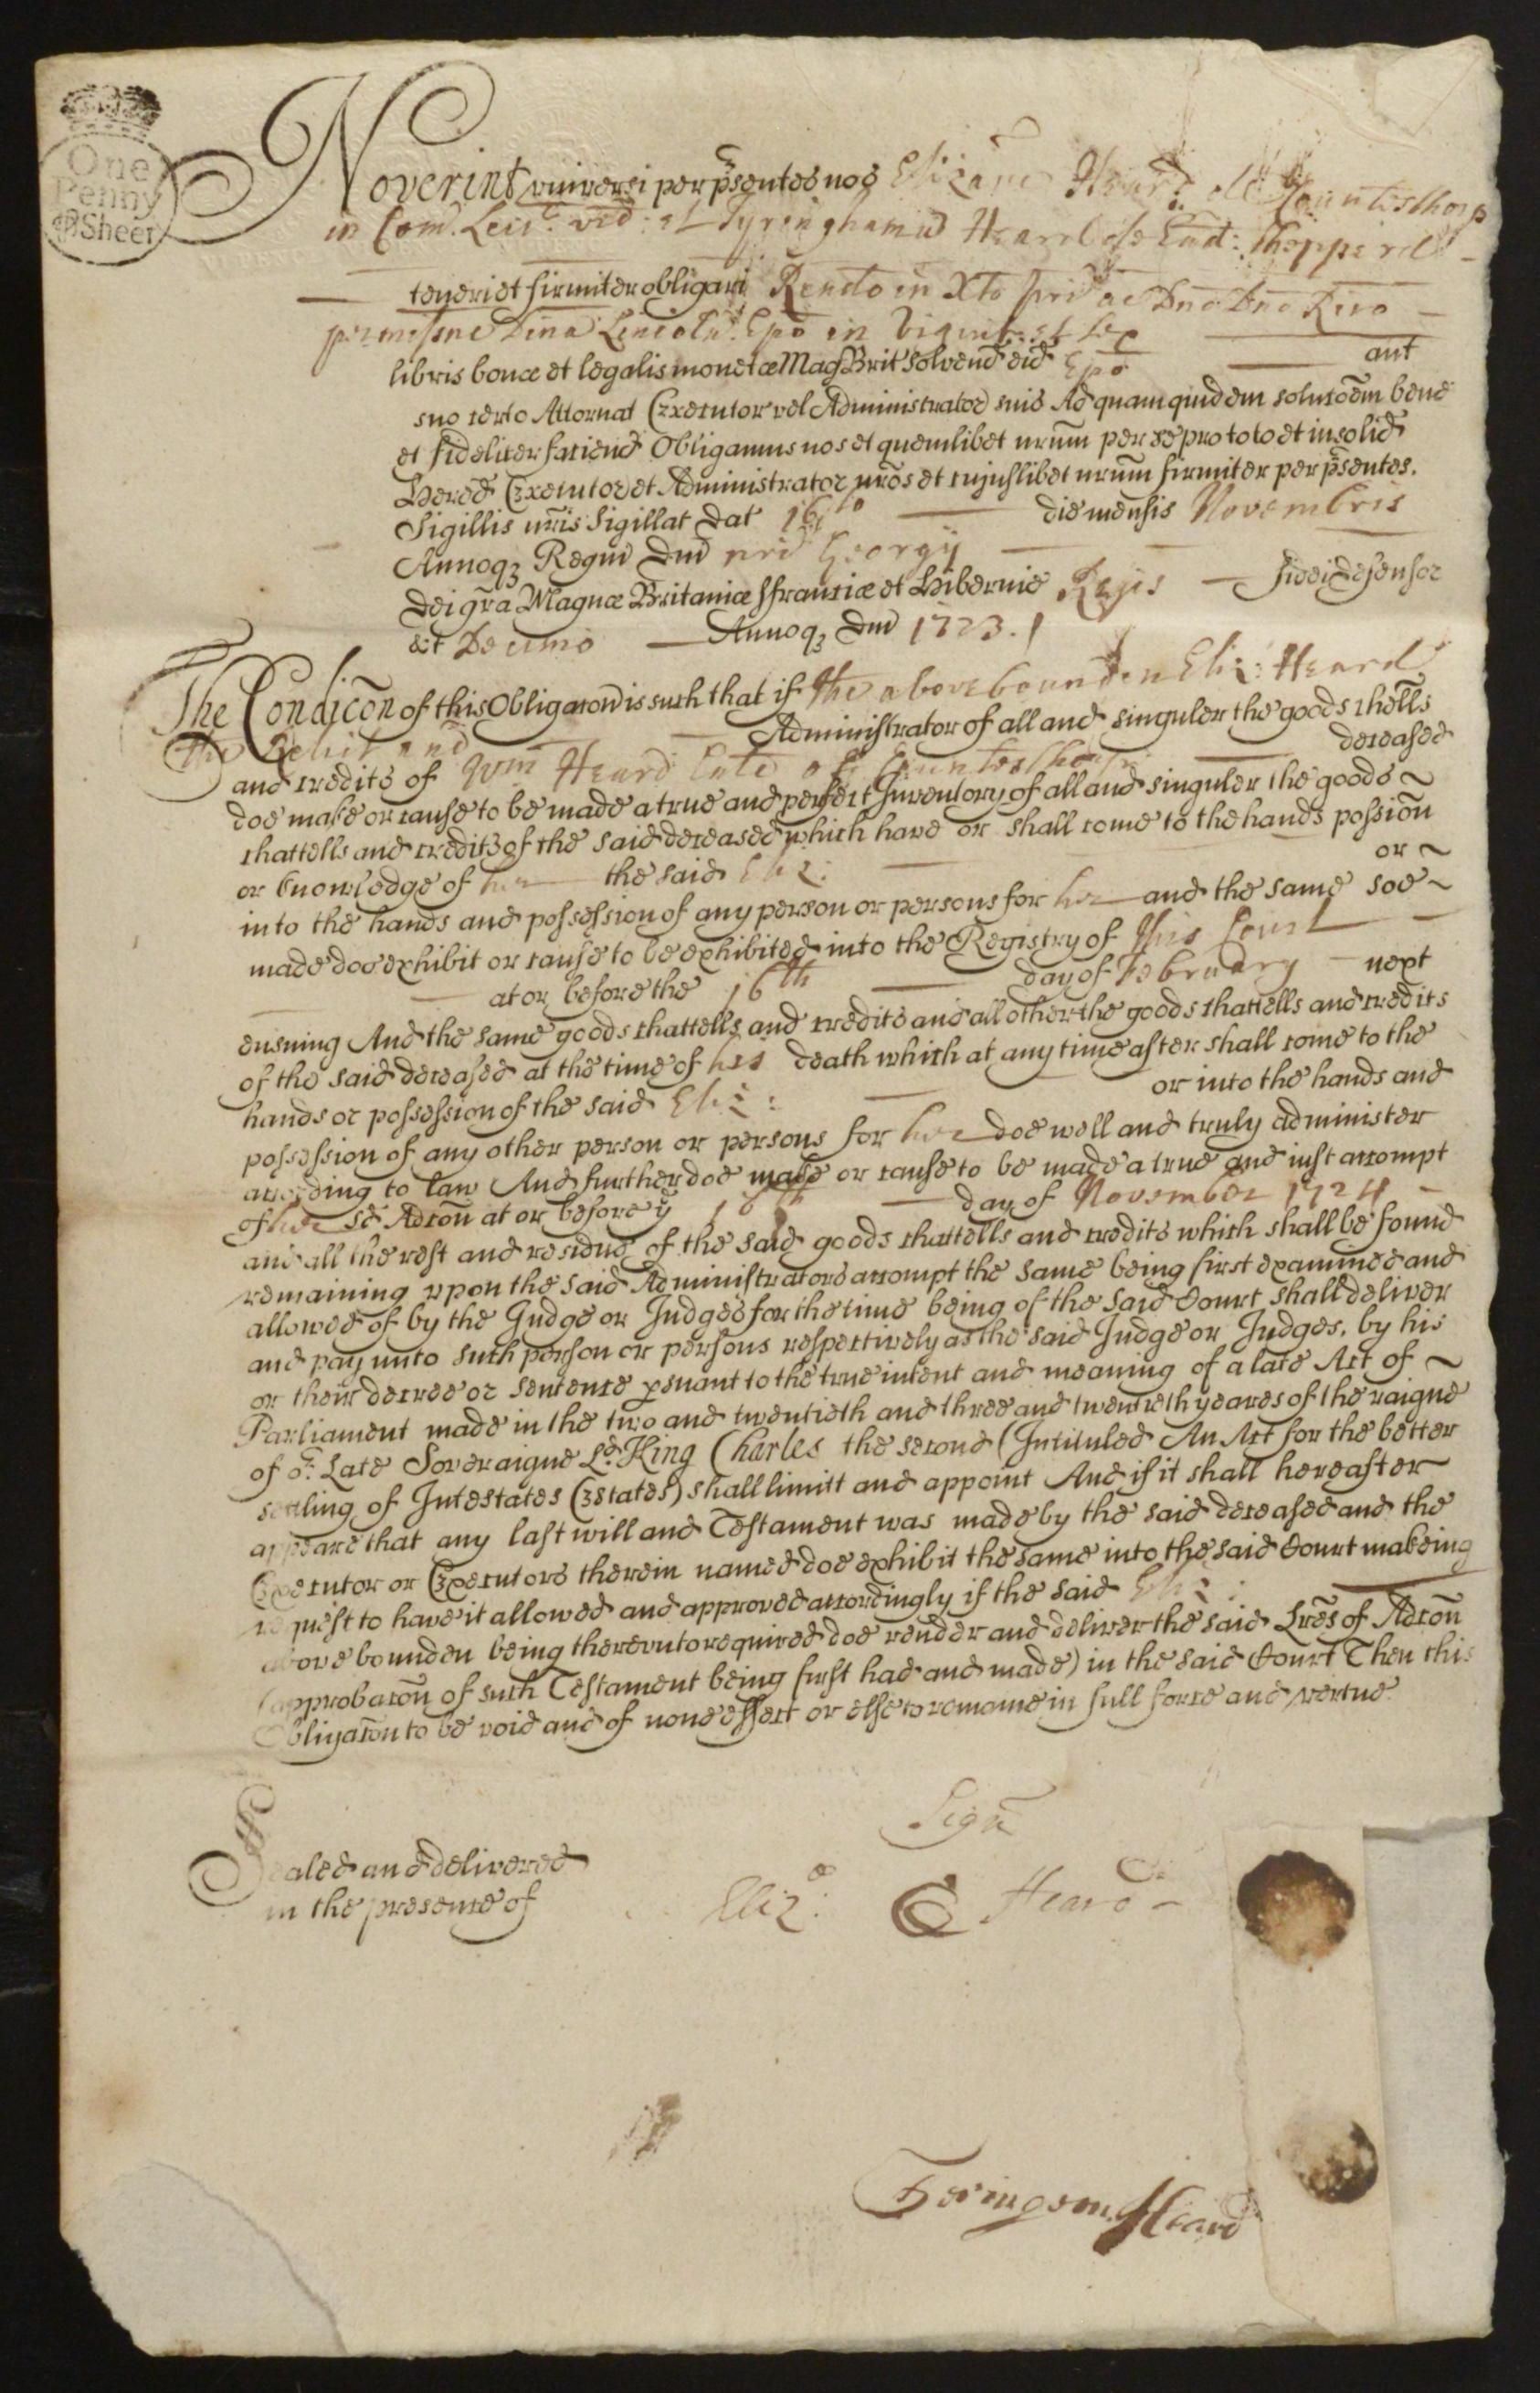 One
Penny
Sheet
Noverint universi per p̄sentes nos Heard de Countesthorp
in Com. Leic. vid: et Heard de Ead:
teneri et firmiter obligari Rendo in Xto pri ac Dno Dno Rico
permissne Dina Lincoln Epō in et
libris bonæ et legalis monetæ Mag Brit solvend eid Epō aut
suo certo Attornat Executor vel Administrator suis Ad quam quidem soluco͞em bene
et fideliter faciend Obligamus nos et quemlibet nrūm per se pro toto et in solid
Hered Executor et Administrator nrōs et cujuslibet nrūm firmiter per p̄sentes.
Sigillis nr̄is Sigillat Dat 16to die mensis Novembris
Annoqꝫ Regni Dni nri Georgij
Dei gr̄a Magnæ Britaniæ ffranciæ et Hibernie Regis fidei Defensor
&t Decimo Annoqꝫ Dni 1723.
The Condic͞on of this Obligacon is such that if the above bounden Eliz: Heard
the Relict and Administrator of all and singuler the goods chells
and credits of Wm Heard late of Countesthorp deceased
doe make or cause to be made a true and perfect Inventory of all and singuler the goods ~
chattells and credits of the said deceased which have or shall come to the hands possion
or knowledge of her the said Eliz: or ~
into the hands and possession of any person or persons for her and the same soe ~
made doe exhibit or cause to be exhibited into the Registry of this Court
at or before the 16th day of February next
ensuing And the same goods chattells and credits and all other the goods chattells and credits
of the said deceased at the time of his death which at any time after shall come to the
hands or possession of the said Eliz: or into the hands and
possession of any other person or persons for her doe well and truly administer
according to law And further doe make or cause to be made a true and iust accompt
of her sd Adcōn at or before ye 16th day of November 1724
and all the rest and residue of the said goods chattells and credits which shall be found
remaining vpon the said Administrators accompt the same being first examined and
allowed of by the Judge or Judges for the time being of the said Court shall deliver
and pay unto such person or persons respectively as the said Judge or Judges. by his
or their decree or sentence psuant to the true intent and meaning of a late Act of ~
Parliament made in the two and twentieth and three and twentieth yeares of the raigne
of or Late Soveraigne Ld King Charles the second (Intituled An Act for the better
setling of Intestates Estates) shall limitt and appoint And if it shall hereafter
appeare that any last will and Testament was made by the said deceased and the
Executor or Executors therein named doe exhibit the same into the said Court makeing
request to have it allowed and approved accordingly if the said Eliz:
above bounden being therevnto required doe render and deliver the said Lrēs of Adcōn
(approbacōn of such Testament being first had and made) in the said Court Then this
Obligacōn to be void and of none effect or else to remaine in full force and vertue
Sealed and delivered
in the presence of
Sign̄
Eliz: Heard
Heard